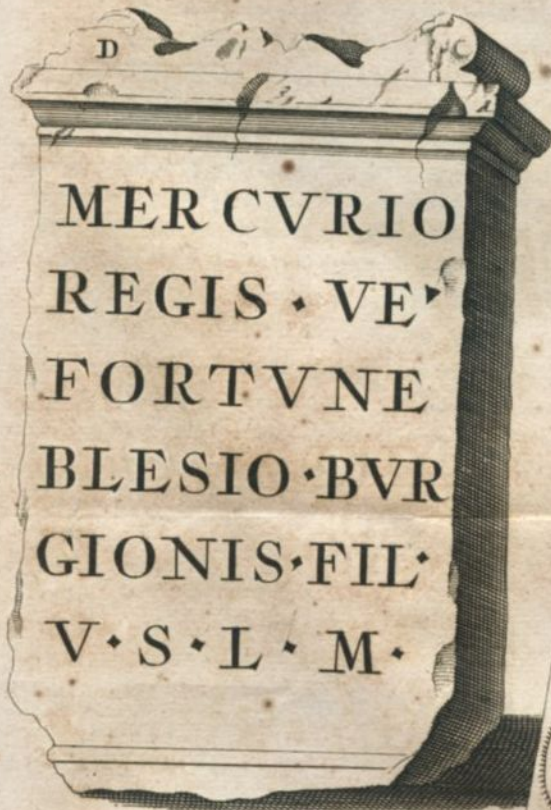 D
MERCVRIO
REGIS · VE‛
FORTVNE
BLESIO · BVR
GIONIS · FIL ·
V · S · L · M ·